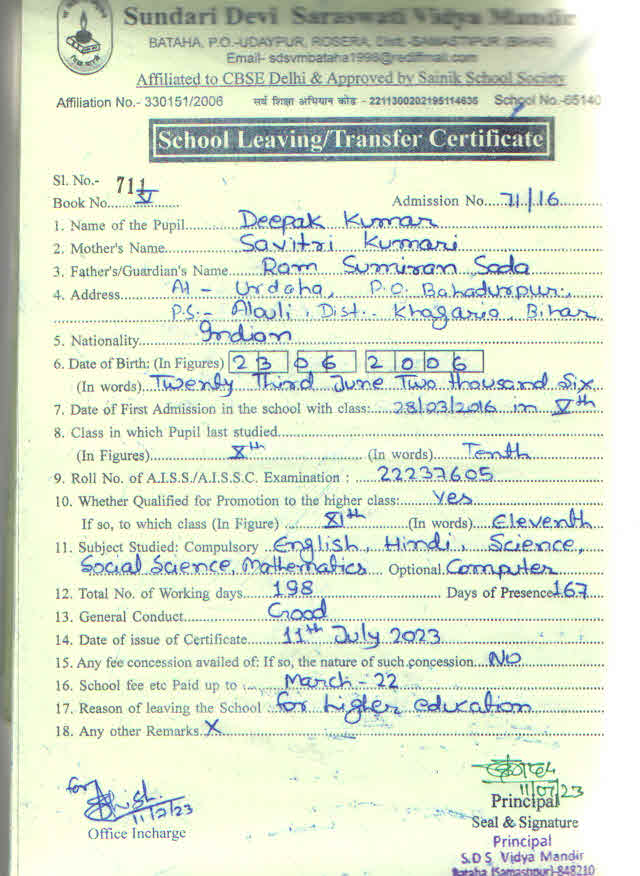 Sundari Devi Saraswati Vidya Mandir
BATAHA, P.O.-UDAYPUR, ROSERA, Distt.-SAMASTIPUR (BIHAR)
Email- sdsvmbataha1996@rediffmail.com
Affiliated to CBSE Delhi & Approved by Sainik School Society
Affiliation No.- 330151/2006 सर्व शिक्षा अभियान कोड - 2211300202195114636 School No.-65140
School Leaving/Transfer Certificate
Sl. No.- 711
Book No. XV Admission No. 71/16
1. Name of the Pupil Deepak Kumar
2. Mother's Name Savitri Kumari
3. Father's/Guardian's Name Ram Sumiran Sada
4. Address At - Urdaha, P.O. Bahadurpur,
P.S.- Alauli, Dist.- Khagaria, Bihar
5. Nationality Indian
6. Date of Birth: (In Figures) 23 06 2006
(In words) Twenty Third June Two thousand Six
7. Date of First Admission in the school with class: 28/03/2016 in Vth
8. Class in which Pupil last studied
(In Figures) Xth (In words) Tenth
9. Roll No. of A.I.S.S./A.I.S.S.C. Examination : 22237605
10. Whether Qualified for Promotion to the higher class: Yes
If so, to which class (In Figure) XIth (In words) Eleventh
11. Subject Studied: Compulsory English, Hindi, Science,
Social Science, Mathematics Optional Computer
12. Total No. of Working days 198 Days of Presence 167
13. General Conduct Good
14. Date of issue of Certificate 11th July 2023
15. Any fee concession availed of: If so, the nature of such concession No
16. School fee etc Paid up to March-22
17. Reason of leaving the School for higher education
18. Any other Remarks X
for
11/7/23
Office Incharge
11/07/23
Principal
Seal & Signature
Principal
S.D.S. Vidya Mandir
Bataha (Samastipur)-848210